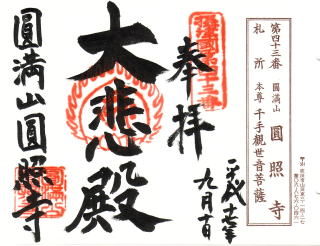 第四十三番
札所
圓満山
圓照寺
本尊 千手観世音菩薩
奉拝
大悲殿
圓満山圓照寺
九月十日